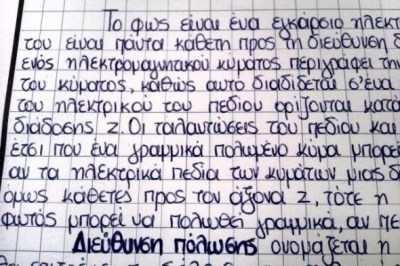 Το φως είναι ένα εγκάρσιο ηλεκτ
του είναι πάντα κάθετη προς τη διεύθυνση δ
ενός ηλεκτρομαγνητικού κύματος περιγράφει την
του κύματος, καθώς αυτό διαδίδεται σ'ένα
του ηλεκτρικού του πεδίου ορίζονται κατά
διάδοσης z. Οι ταλαντώσεις του πεδίου και
έτσι που ένα γραμμικά πολωμένο κύμα μπορεί
αν τα ηλεκτρικά πεδία των κυμάτων μιας δ
όμως κάθετες προς τον άξονα z, τότε η
φωτός μπορεί να πολωθεί γραμμικά, αν πε
Διεύθυνση πόλωσης ονομάζεται η